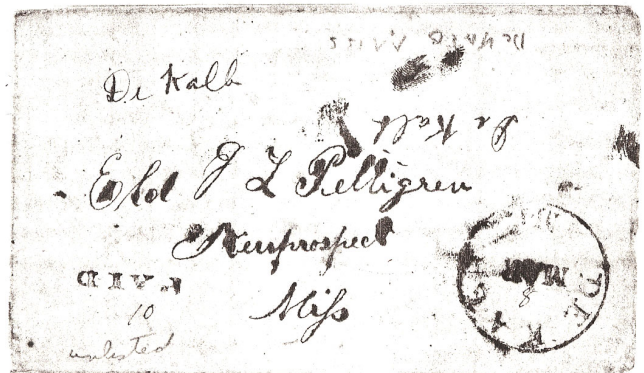 De Kalb
De Kalb
Eld J L Pelligren
Newprospect
Miss
PAID
10
unlisted
DE KALB
MAR
8